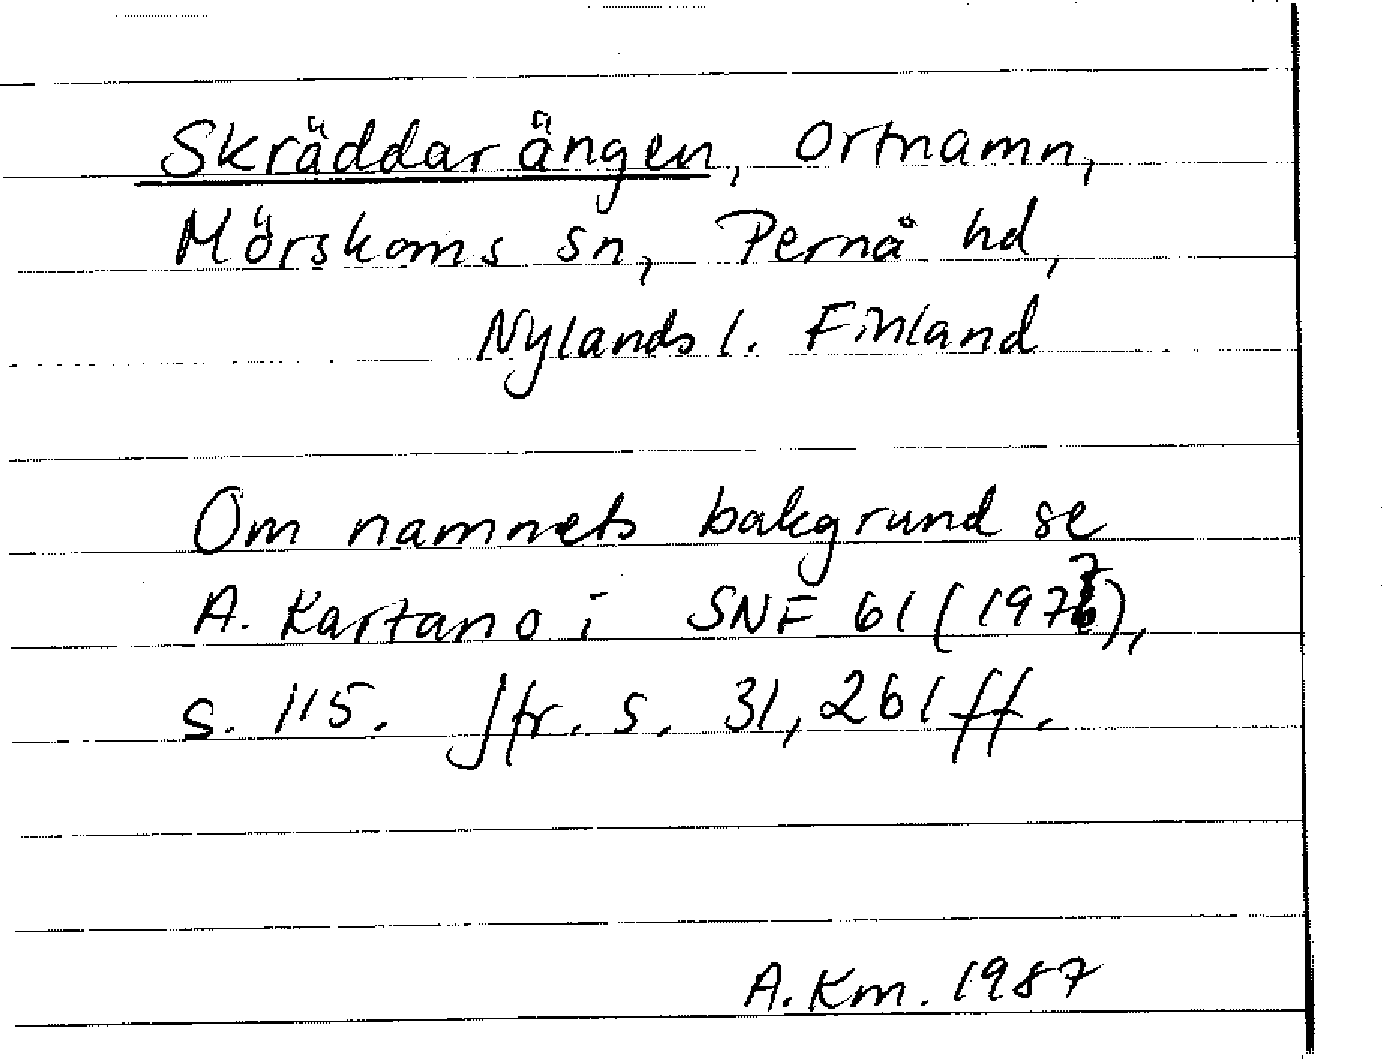 Skräddarängen, Ortnamn,
Mörskoms sn, Pernå hd,
Nylands l. Finland
Om namnets bakgrund se
A. Kartano i SNF 61 (1977),
s. 115. Jfr. s. 31, 261 ff.
A. Km. 1987